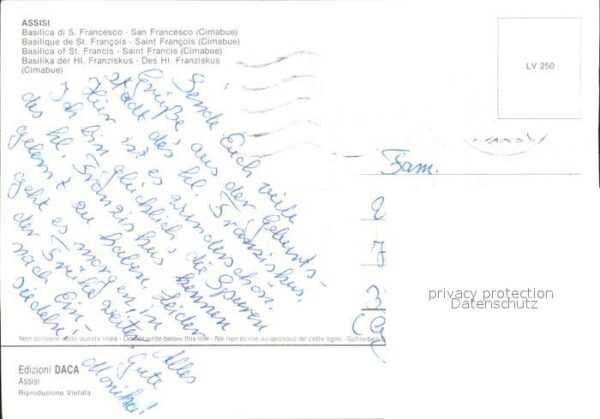 ASSISI
Basilica di S. Francesco - San Francesco (Cimabue)
Basilique de St. François - Saint François (Cimabue)
Basilica of St. Francis - Saint Francis (Cimabue)
Basilika der Hl. Franziskus - Des Hl. Franziskus
(Cimabue)
LV 250
Sende Euch viele
Grüße aus der Geburts-
stadt des hl. Franziskus.
Hier ist es wunderschön.
Ich bin glücklich, die Spuren
des hl. Franziskus kennen
gelernt zu haben. Leider
geht es morgen, in
der Frühe weiter
nach Ein-
siedeln!
Alles
Gute
Monika!
Fam.
privacy protection
Datenschutz
Non scrivere sotto questa linea - Do not write below this line - Ne rien écrire au-dessous de cette ligne - Schreiben
Edizioni DACA
Assisi
Riproduzione Vietata